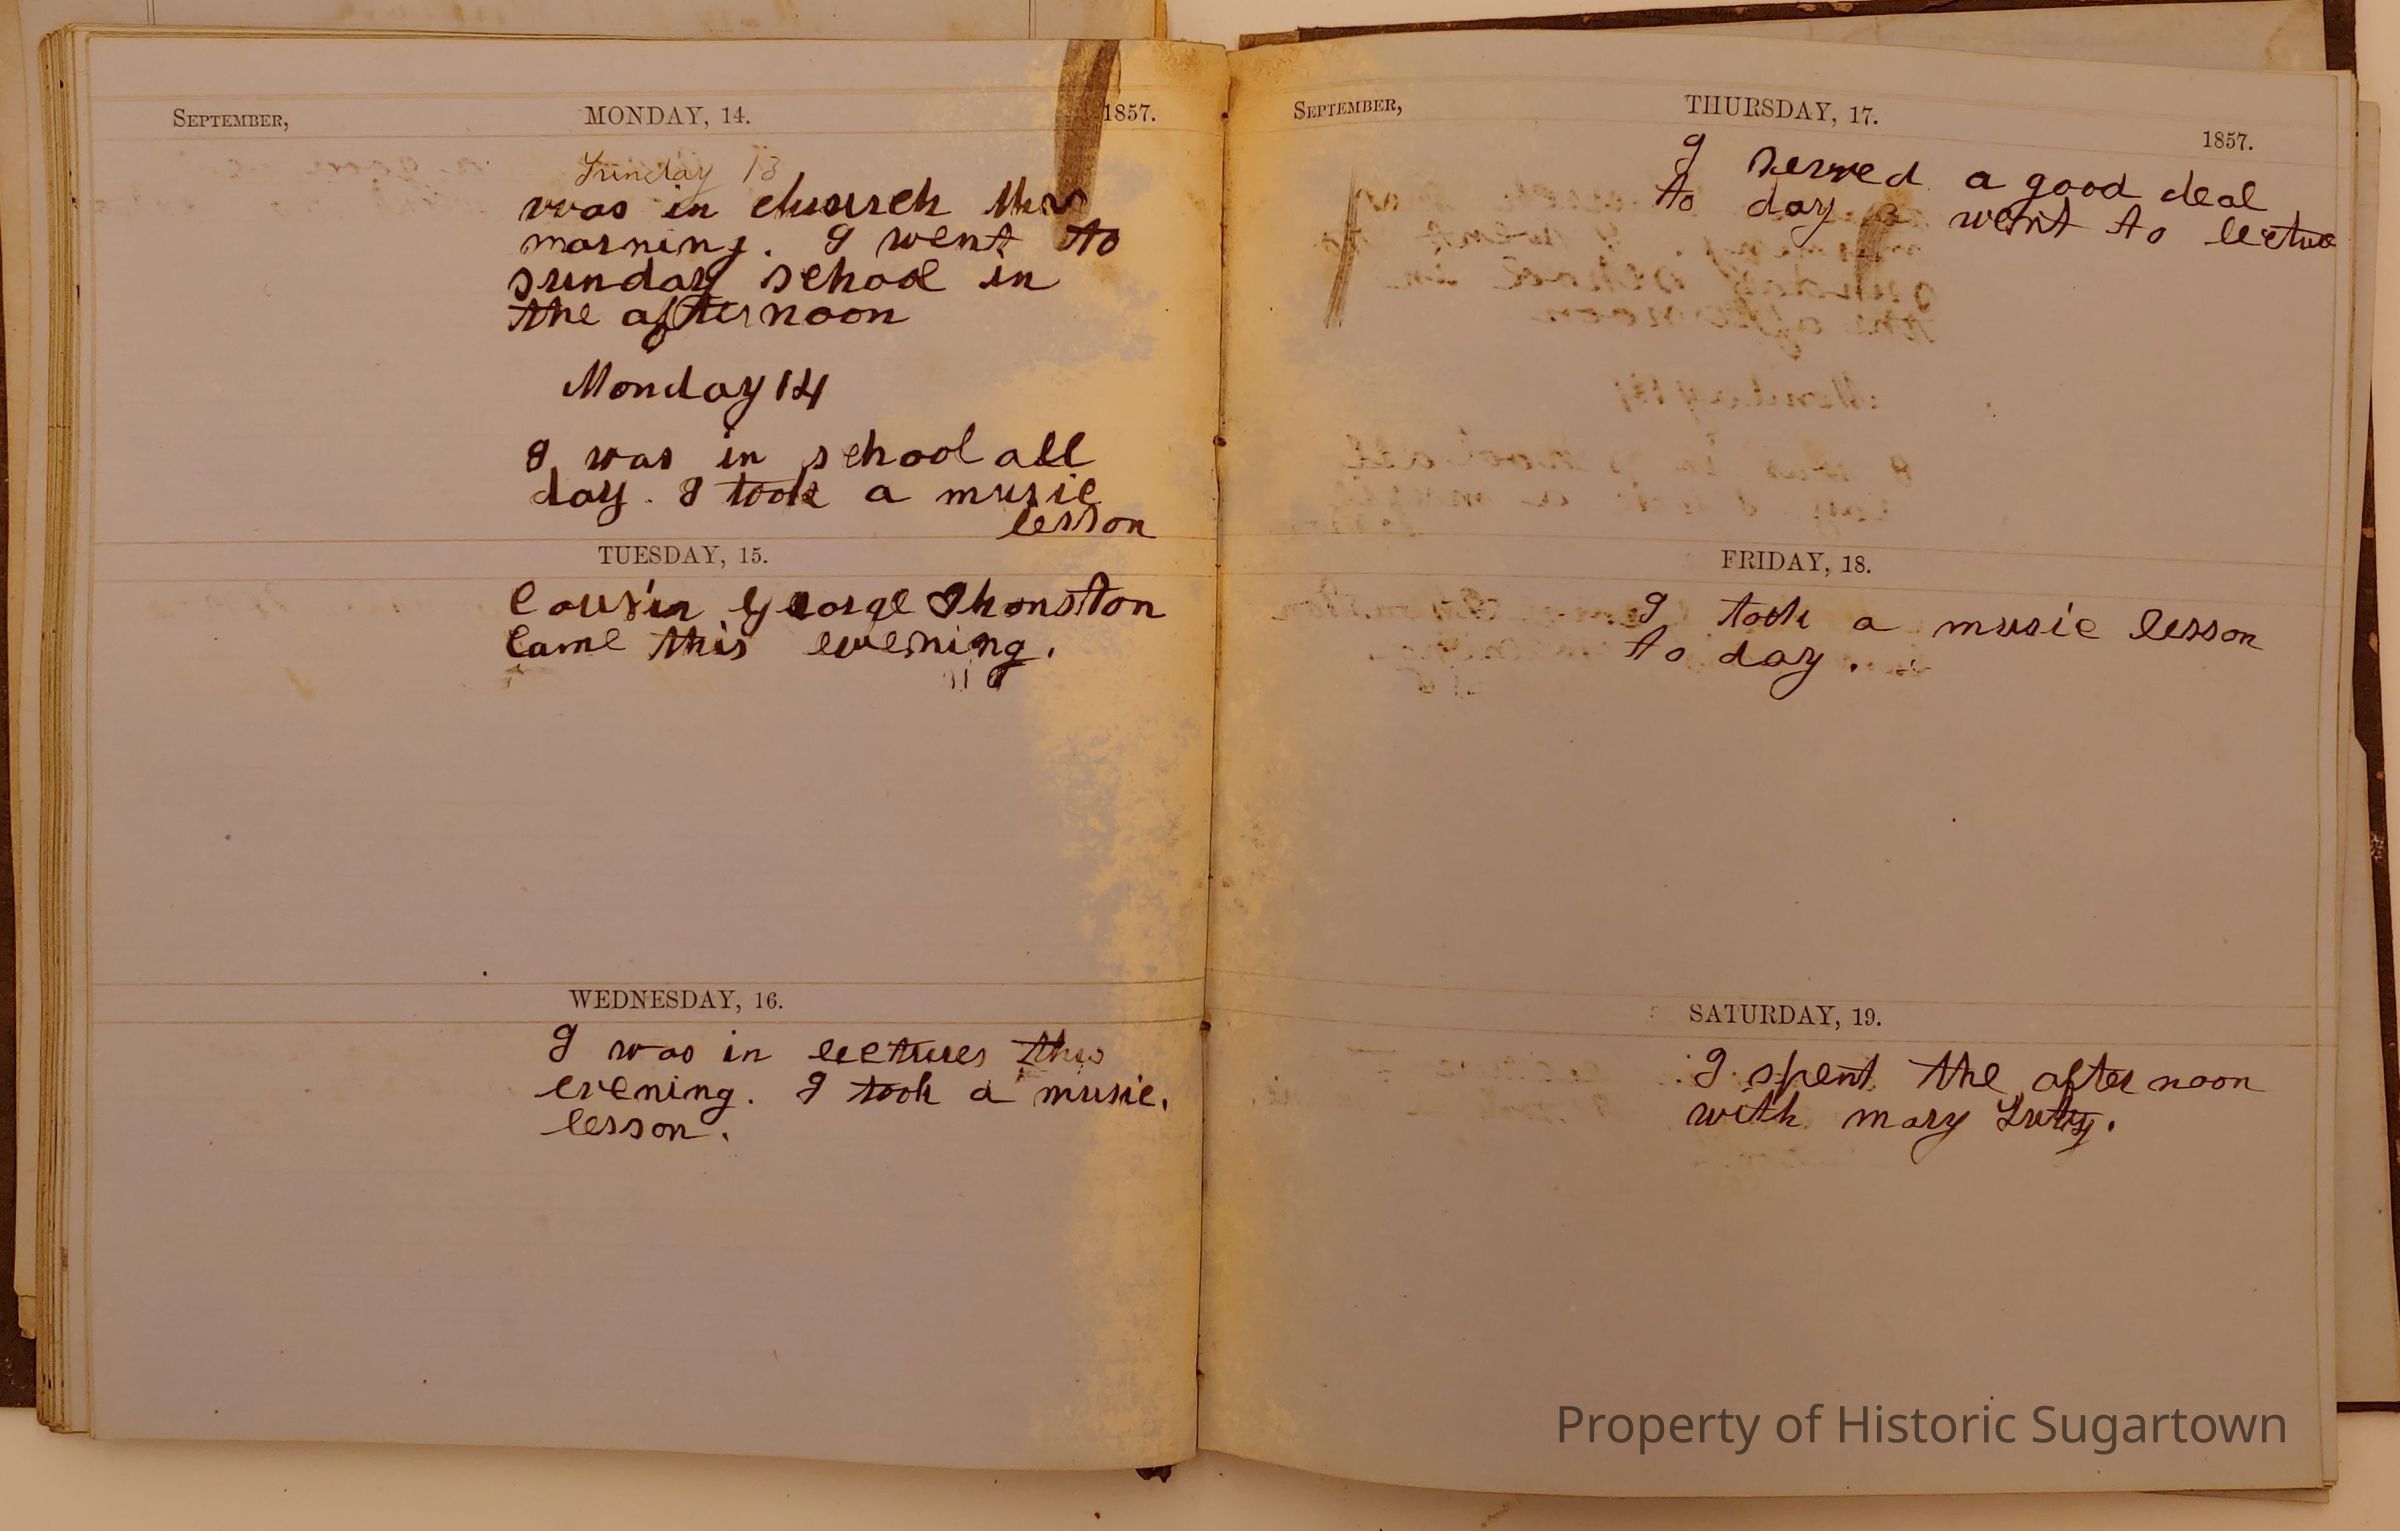 SEPTEMBER, MONDAY, 14. 1857.
Sunday 13
was in church this
morning. I went to
sunday school in
the afternoon
Monday 14
I was in school all
day. I took a music
lesson
TUESDAY, 15.
Cousin George Thonston
came this evening.
WEDNESDAY, 16.
I was in lectures this
evening. I took a music.
lesson.
SEPTEMBER, THURSDAY, 17. 1857.
I sewed a good deal
to day I went to lecture
FRIDAY, 18.
I took a music lesson
to day.
SATURDAY, 19.
I spent the after noon
with mary
Property of Historic Sugartown